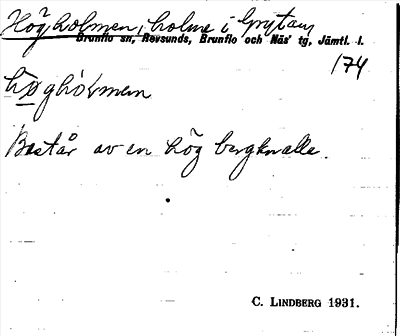 Högholmen, holme i Grytan
Brunflo sn, Revsunds, Brunflo och Näs' tg, Jämtl. l.
174
høghòlmen
Består av en hög bergknalle.
C. LINDBERG 1931.